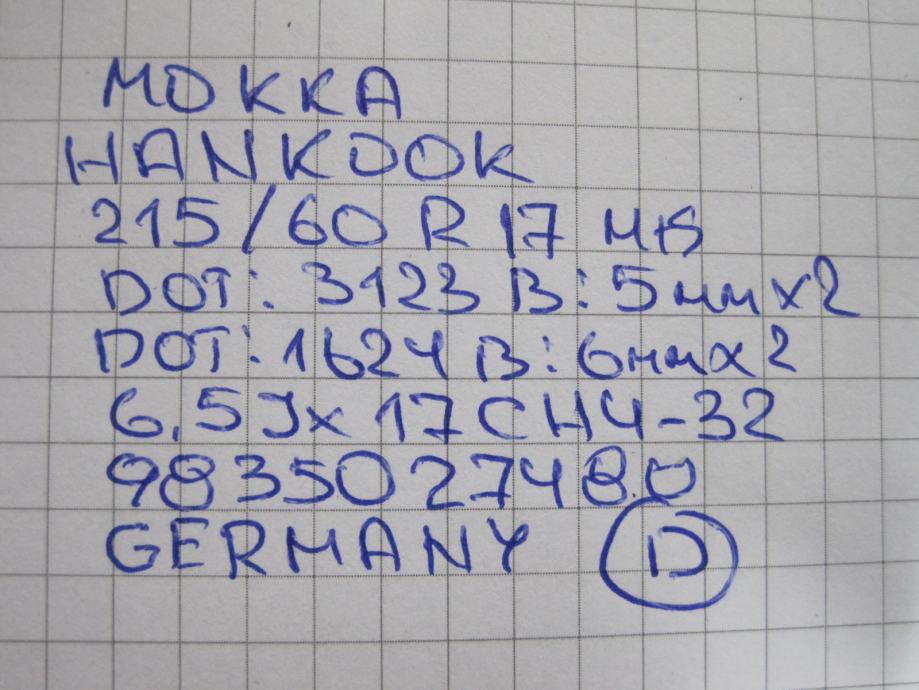 MOKKA
HANKOOK
215/60 R 17 MB
DOT: 3123 B: 5ммx2
DOT: 1624 B: 6ммx2
6,5Jx 17 CH4-32
9835027480
GERMANY D